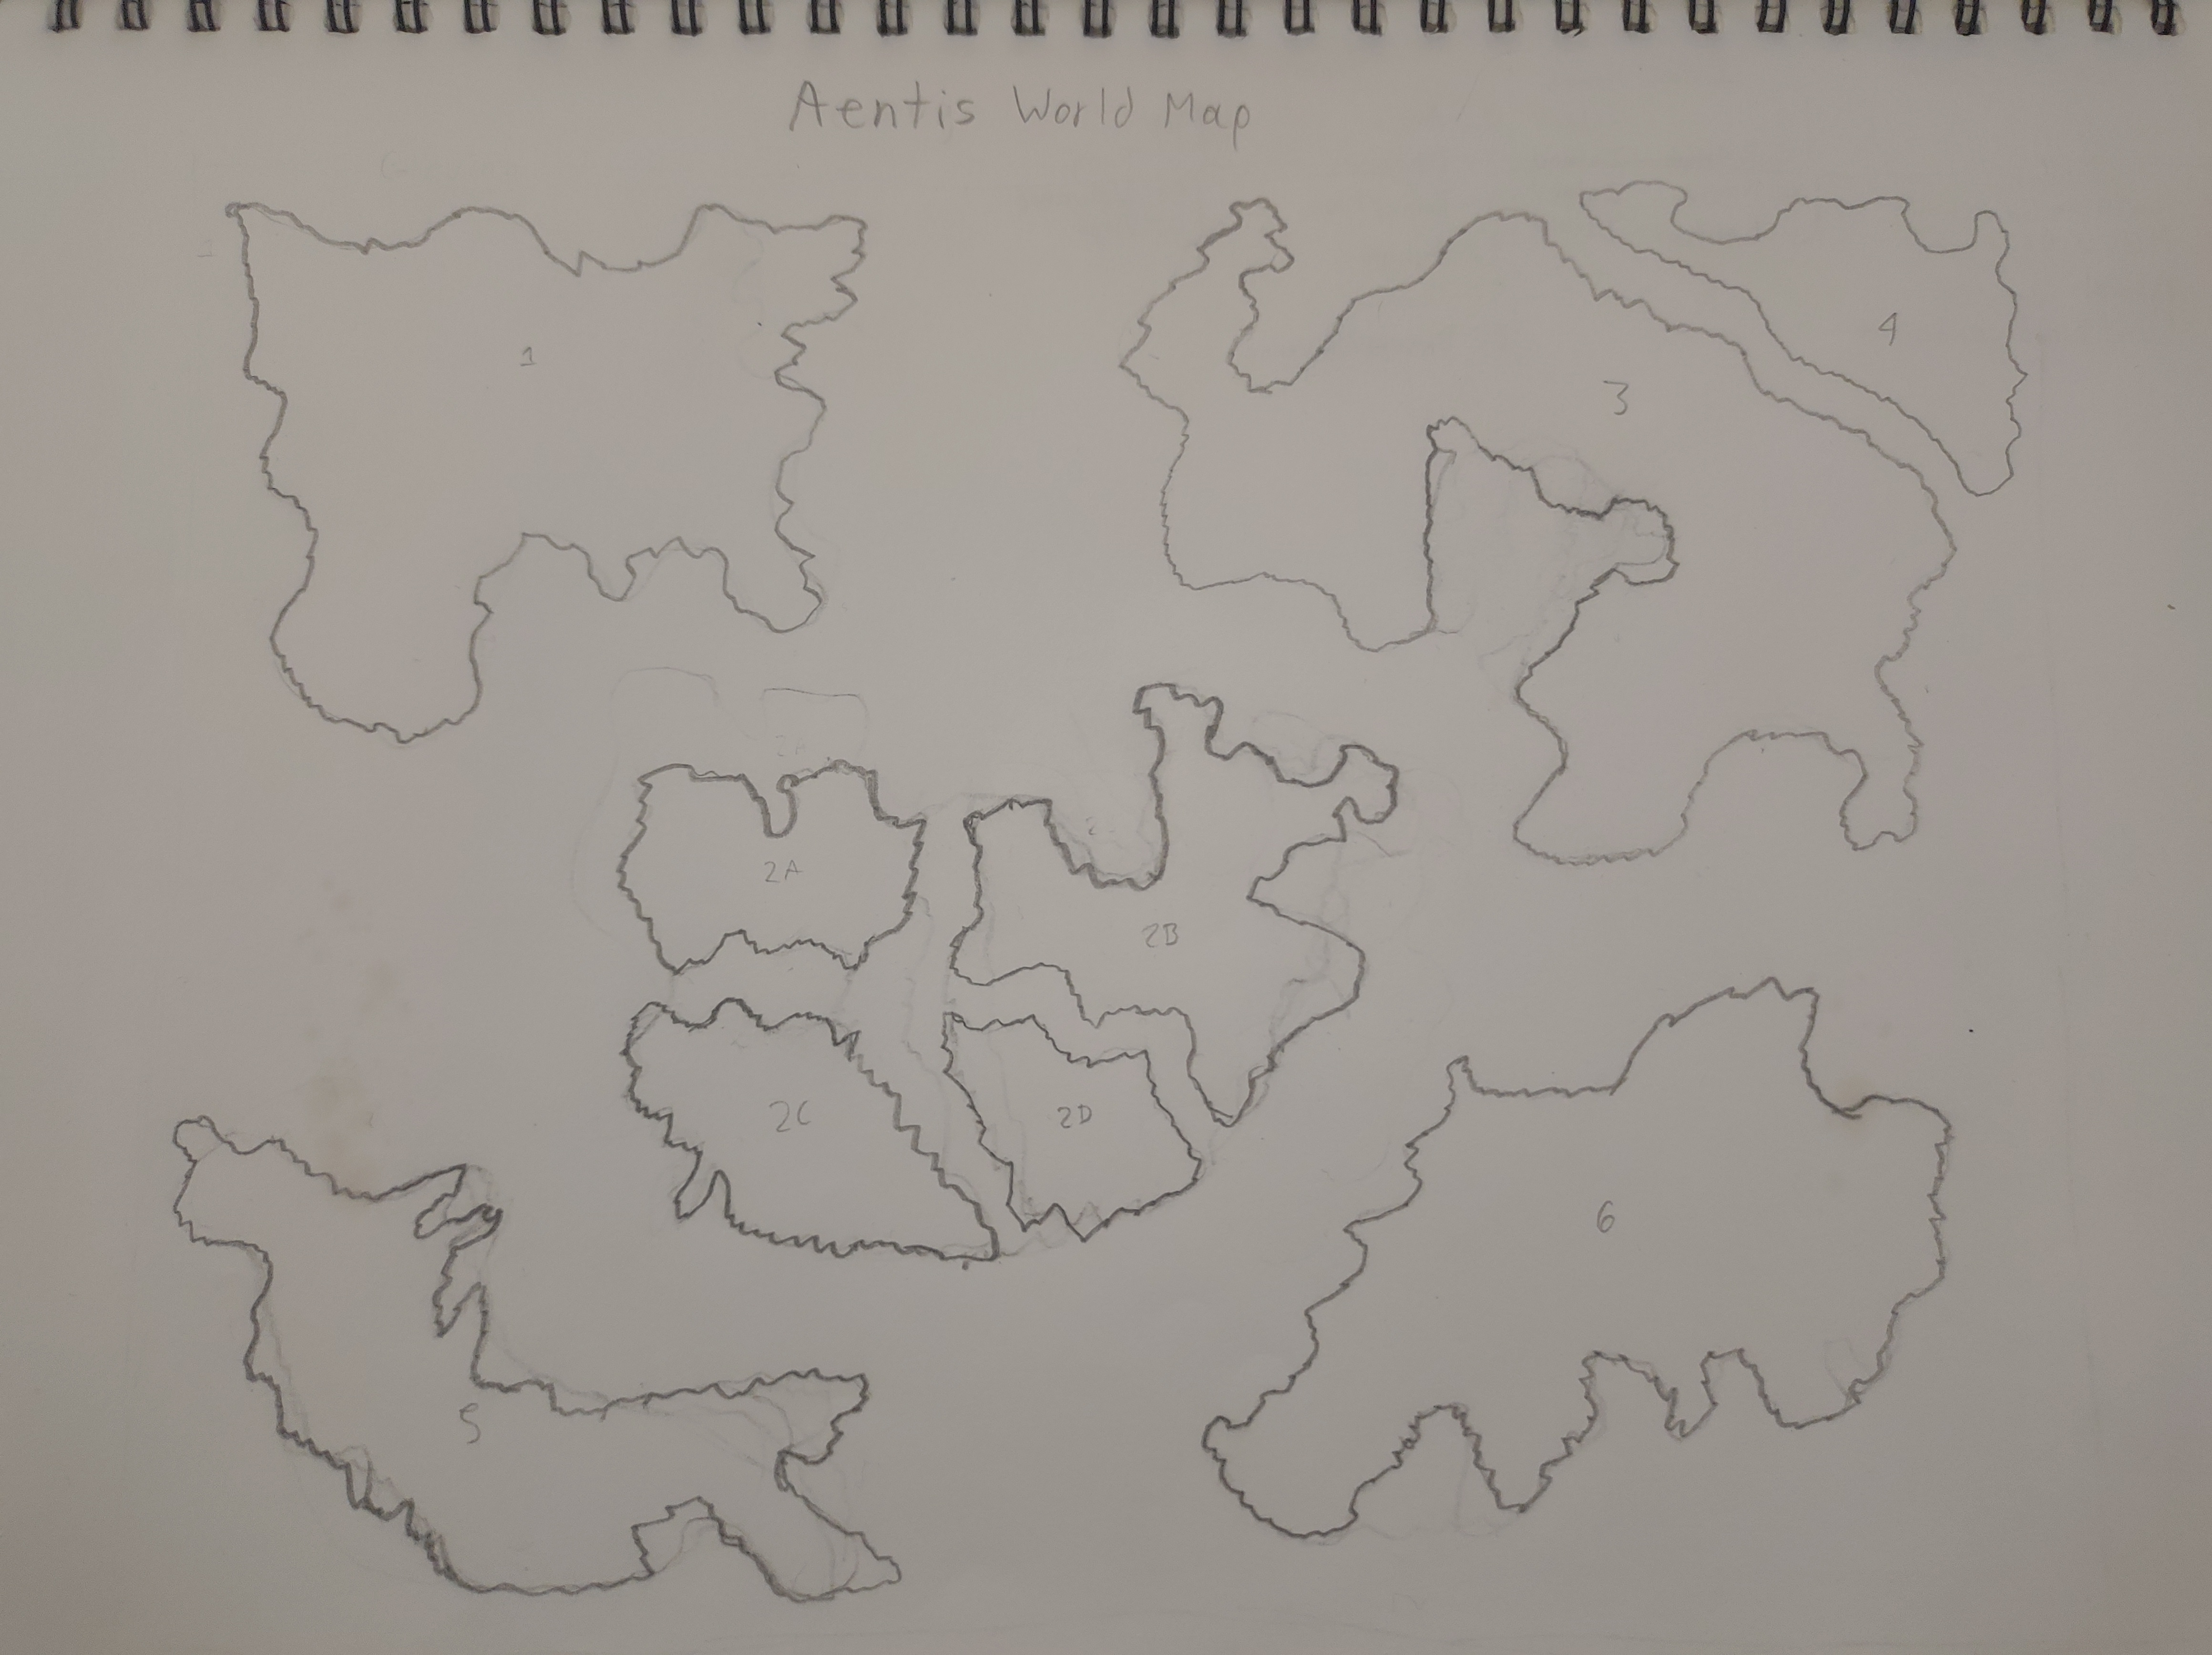 Aentis World Map
1
3
4
2A
2B
2C
2D
5
6